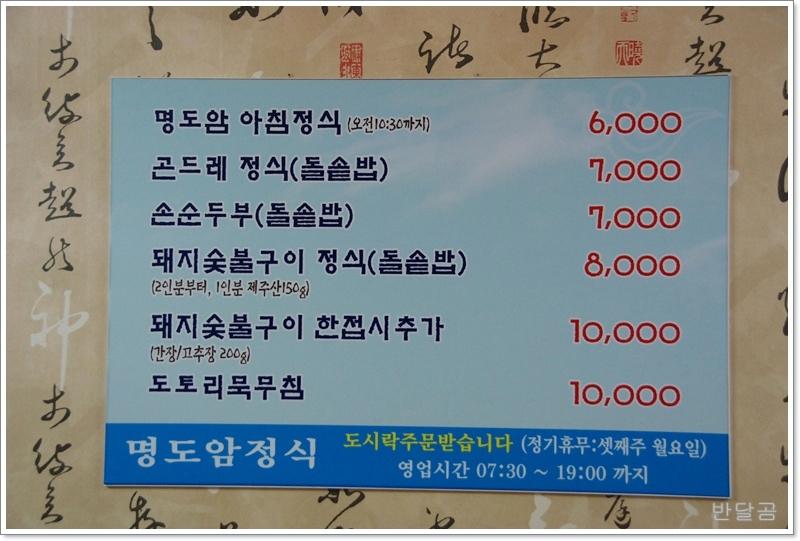 명도암 아침정식 (오전10:30까지) 6,000
곤드레 정식(돌솥밥) 7,000
손순두부(돌솥밥) 7,000
돼지숯불구이 정식(돌솥밥) 8,000
(2인분부터, 1인분 제주산150g)
돼지숯불구이 한접시추가 10,000
(간장/고추장 200g)
도토리묵무침 10,000
명도암정식 도시락주문받습니다 (정기휴무:셋째주 월요일)
영업시간 07:30 ~ 19:00 까지
반달곰